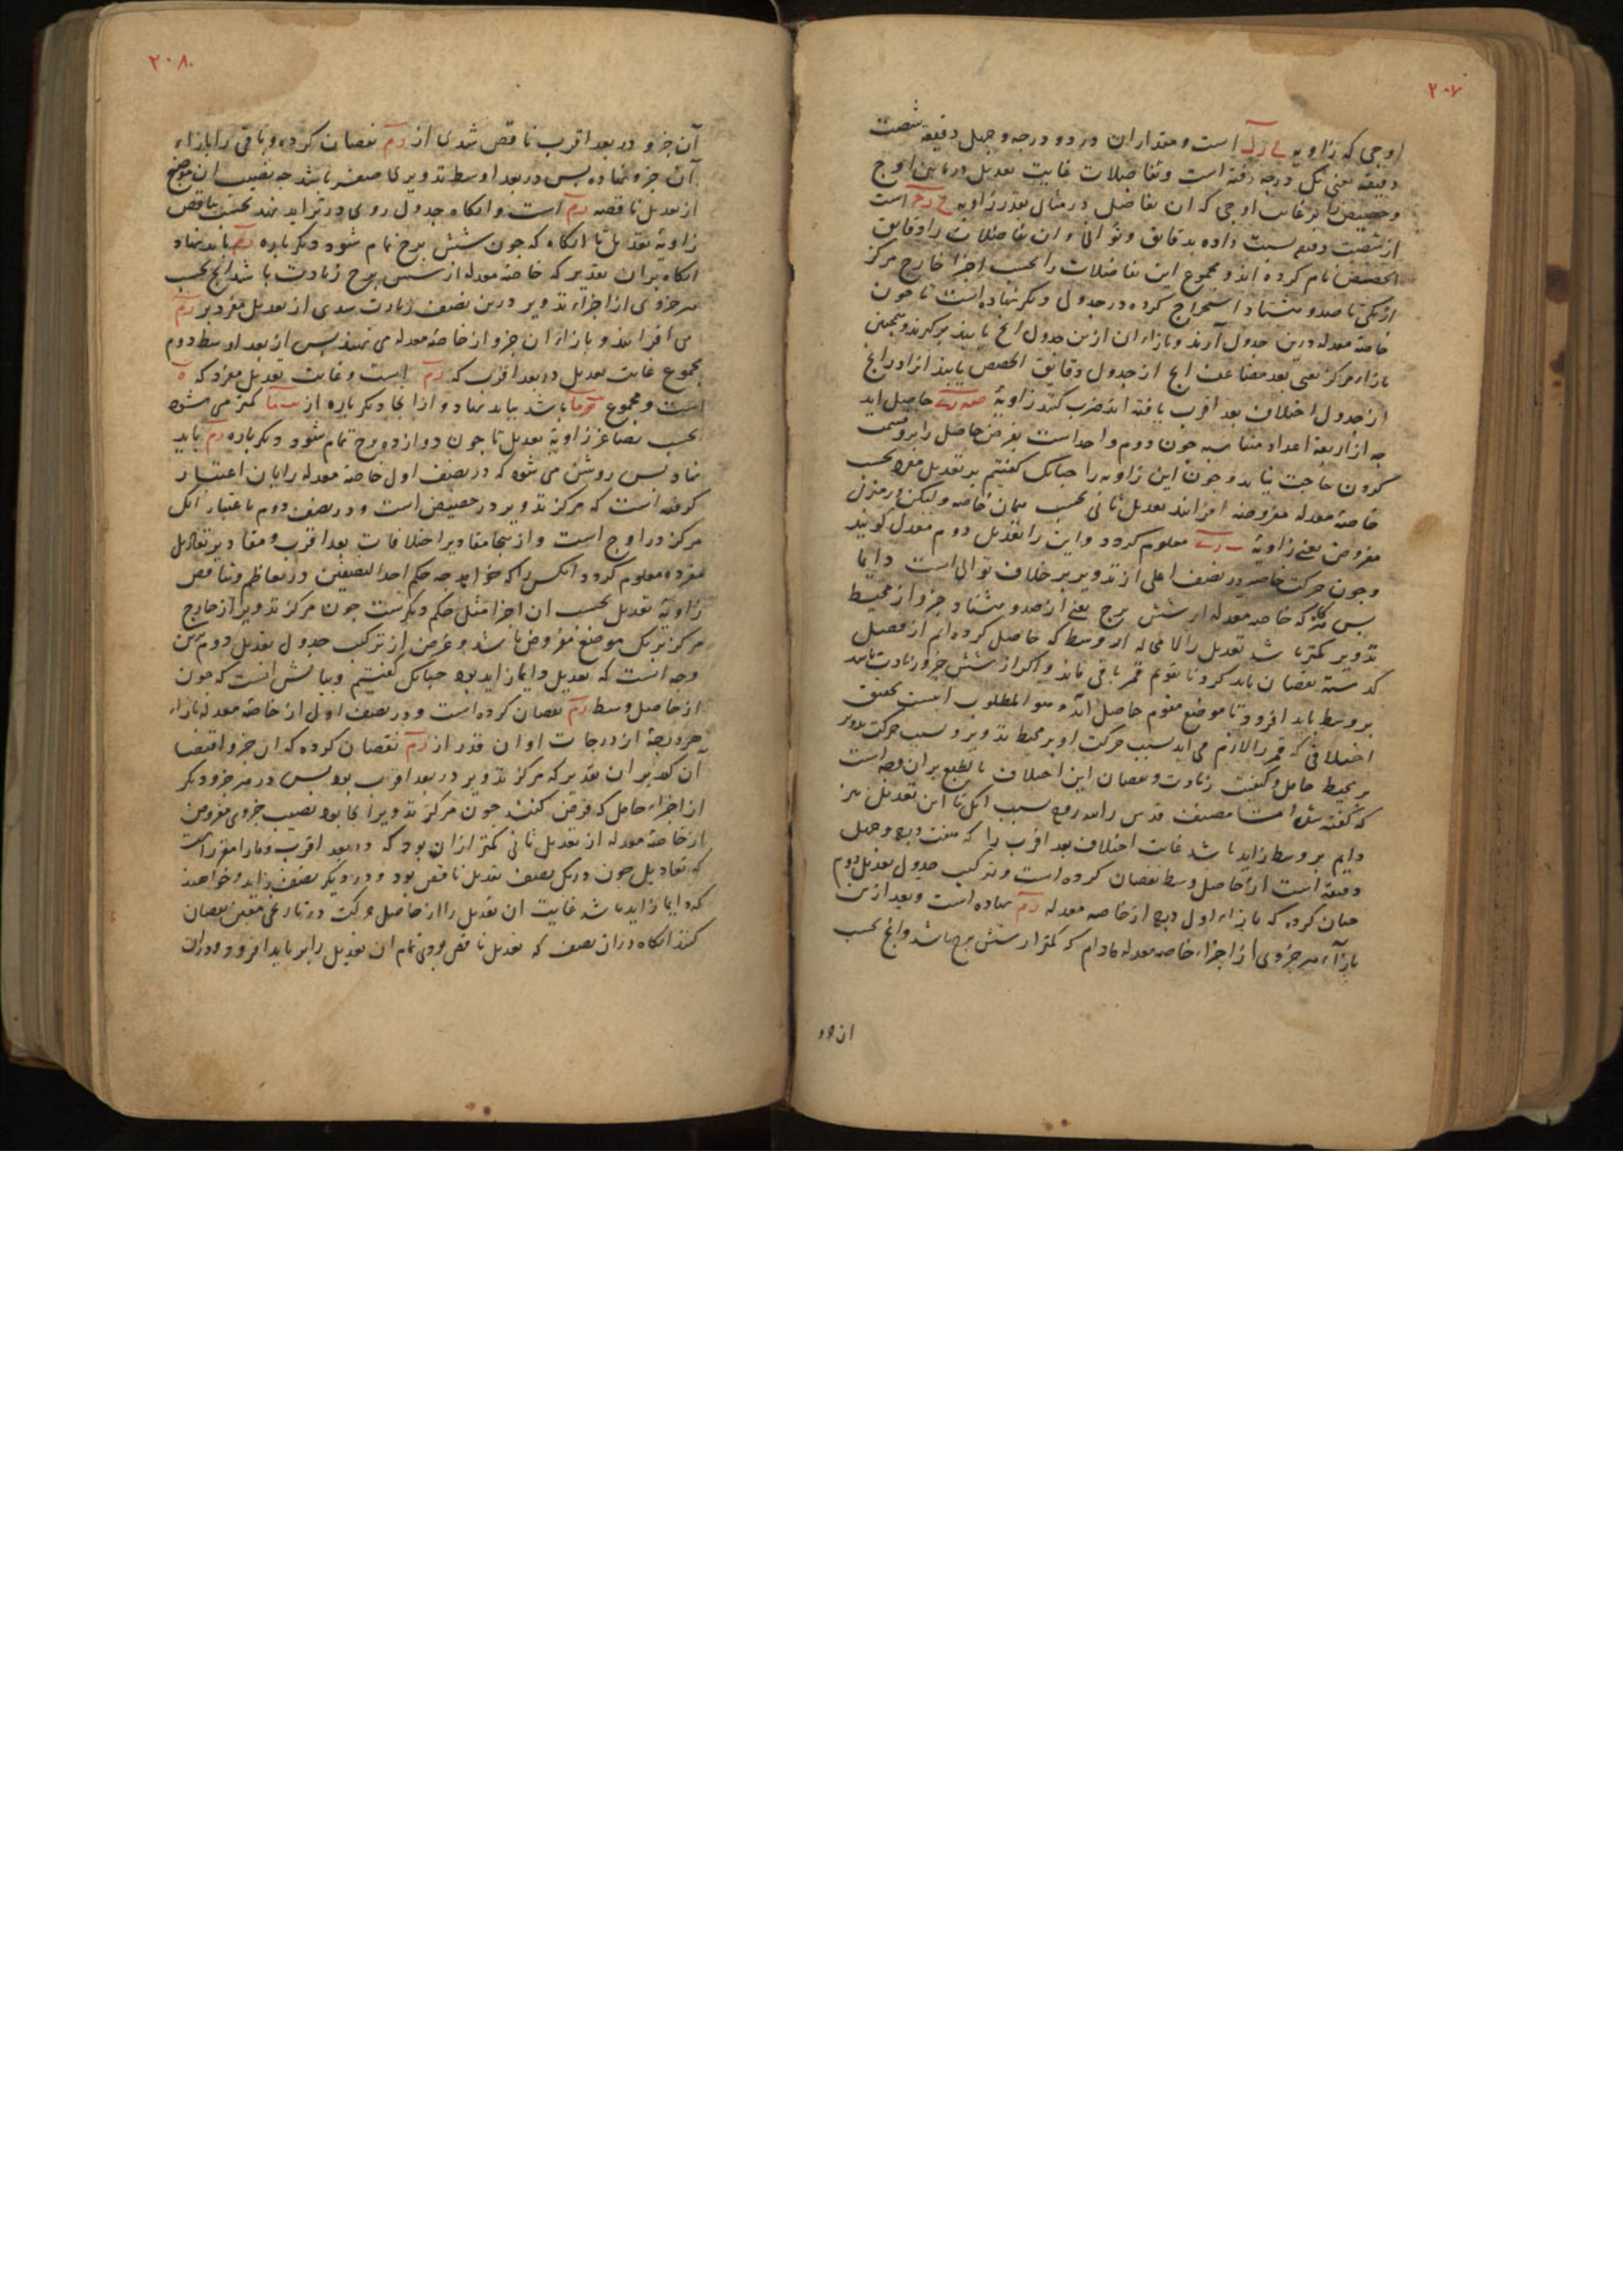 ۲۰۷
اوجی که زاویه است و مقدار ان در دو درجه و چهل دقیقه شصت
دقیقه یعنی یک درجه رفته است و تفاضلات غایت تعدیل در مابین اوج
و حضیض بر غایت اوجی که ان تفاضل در مثال بقدر زاویه است
از شصت دقیقه نسبت داده بدقایق و ثوانی و ان تفاضلات را دقایق
الحصص نام کرده اند و مجموع این تفاضلات را بحسب اجزا خارج مرکز
از یکی تا صد و هشتاد استخراج کرده در جدولی دیگر نهاده است تا چون
خاصه معدله درین جدول آرند و بازاء ان ازین جدول انچ یابند برگیرند و همچنین
بازاء مرکز یعنی بعد مضاعف انچ از جدول دقایق الحصص یابند انرا در انچ
از جدول اختلاف بعد اقرب یافته اند ضرب کنند زاویهٔ حاصل اید
چه از اربعه اعداد متناسبه چون دوم واحد است بفرض حاصل را برو قسمت
کردن حاجت نیاید و چون این زاویه را چنانک گفتیم بر تعدیل مفرد بحسب
خاصهٔ معدله مفروضه افزایند تعدیل ثانی بحسب همان خاصه و لیکن در منزل
مفروض یعنی زاویهٔ معلوم گردد و این را تعدیل دوم معدل گویند
و چون حرکت خاصه در نصف اعلی از تدویر بر خلاف توالی است دایما
پس هرگاه که خاصه معدله از شش برج یعنی از صد و هشتاد جزو از محیط
تدویر کمتر باشد تعدیل را لا محاله از وسط که حاصل کرده ایم از فصل
گذشته نقصان باید کرد تا تقویم قمر باقی ماند و اگر از شش جزو زیادت باشد
بر وسط باید افزود تا موضع مقوم حاصل آید و هو المطلوب اینست تحقیق
اختلافی که قمر را لازم می اید بسبب حرکت او بر محیط تدویر و سبب حرکت تدویر
بر محیط حامل و کیفیت زیادت و نقصان این اختلاف بالطبع بران وجه است
که گفته شد اما مصنف قدس الله روحه سبب انک تا این تعدیل نیز
دایم بر وسط زاید باشد غایت اختلاف بعد اقرب را که هفت درجه و چهل
دقیقه است از حاصل وسط نقصان کرده است و ترکیب جدول تعدیل دوم
چنان کرده که بازاء اول درجه از خاصه معدله زم نهاده است و بعد ازین
بازآء هر جزوی از اجزاء خاصه معدله مادام که کمتر از شش برج باشد و انچ بحسب
ان جزو
۲۰۸
آن جزو در بعد اقرب ناقص شدی از زم نقصان کرده و باقی را بازاء
آن جزو نهاده پس در بعد اوسط تدویری صفر باشد چه نصیب این موضع
از تعدیل ناقصه زم است و انگاه جدول روی در تزاید نهد بحسب تناقص
زاویهٔ تعدیل تا انگاه که چون شش برج تمام شود دیگر باره زم باید نهاد
انگاه بران تقدیر که خاصهٔ معدله از شش برج زیادت باشد انچ بحسب
هر جزوی از اجزاء تدویر درین نصف زیادت شدی از تعدیل مفرد بر زم
می افزایند و بازاء ان جزو از خاصهٔ معدله می نهند پس از بعد اوسط دوم
مجموع غایت تعدیل در بعد اقرب که زم است و غایت تعدیل مفرد که ه
است و مجموع باشد بباید نهاد و از انجا دیگر باره از کمتر می شود
بحسب تصاغر زاویهٔ تعدیل تا چون دوازده برج تمام شود دیگر باره زم باید
نهاد پس روشن می شود که در نصف اول خاصهٔ معدله را بان اعتبار
گرفته است که مرکز تدویر در حضیض است و در نصف دوم باعتبار انک
مرکز در اوج است و از ینجا مقادیر اختلافات بعد اقرب و مقادیر تعادیل
مفرده معلوم گردد انکس را که خواهد چه حکم احد النصفین در تعاظم و تناقص
زاویه تعدیل بحسب ان اجزا مثل حکم دیگرست چون مرکز تدویر از خارج
مرکز بریک موضع مفروض باشد و غرض از ترکیب جدول تعدیل دوم برین
وجه انست که تعدیل دایما زاید بود چنانک گفتیم و بیانش انست که چون
از حاصل وسط زم نقصان کرده است و در نصف اول از خاصهٔ معدله بازاء
هر درجهٔ از درجات او ان قدر از زم نقصان کرده که ان جزو اقتضا
آن کند بر ان تقدیر که مرکز تدویر در بعد اقرب بود پس در هر جزو دیگر
از اجزاء حامل که فرض کنند چون مرکز تدویر انجا بود نصیب جزوی مفروض
از خاصهٔ معدله از تعدیل ثانی کمتر ازان بود که در بعد اقرب و ما را مقرر است
که تعادیل چون در یک نصف تعدیل ناقص بود و در دیگر نصف زاید و خواهند
که دایما زاید باشد غایت ان تعدیل را از حاصل حرکت در تاریخی معین نقصان
کنند انگاه دران نصف که تعدیل ناقص بودی تمام ان تعدیل را بر باید افزود و دران